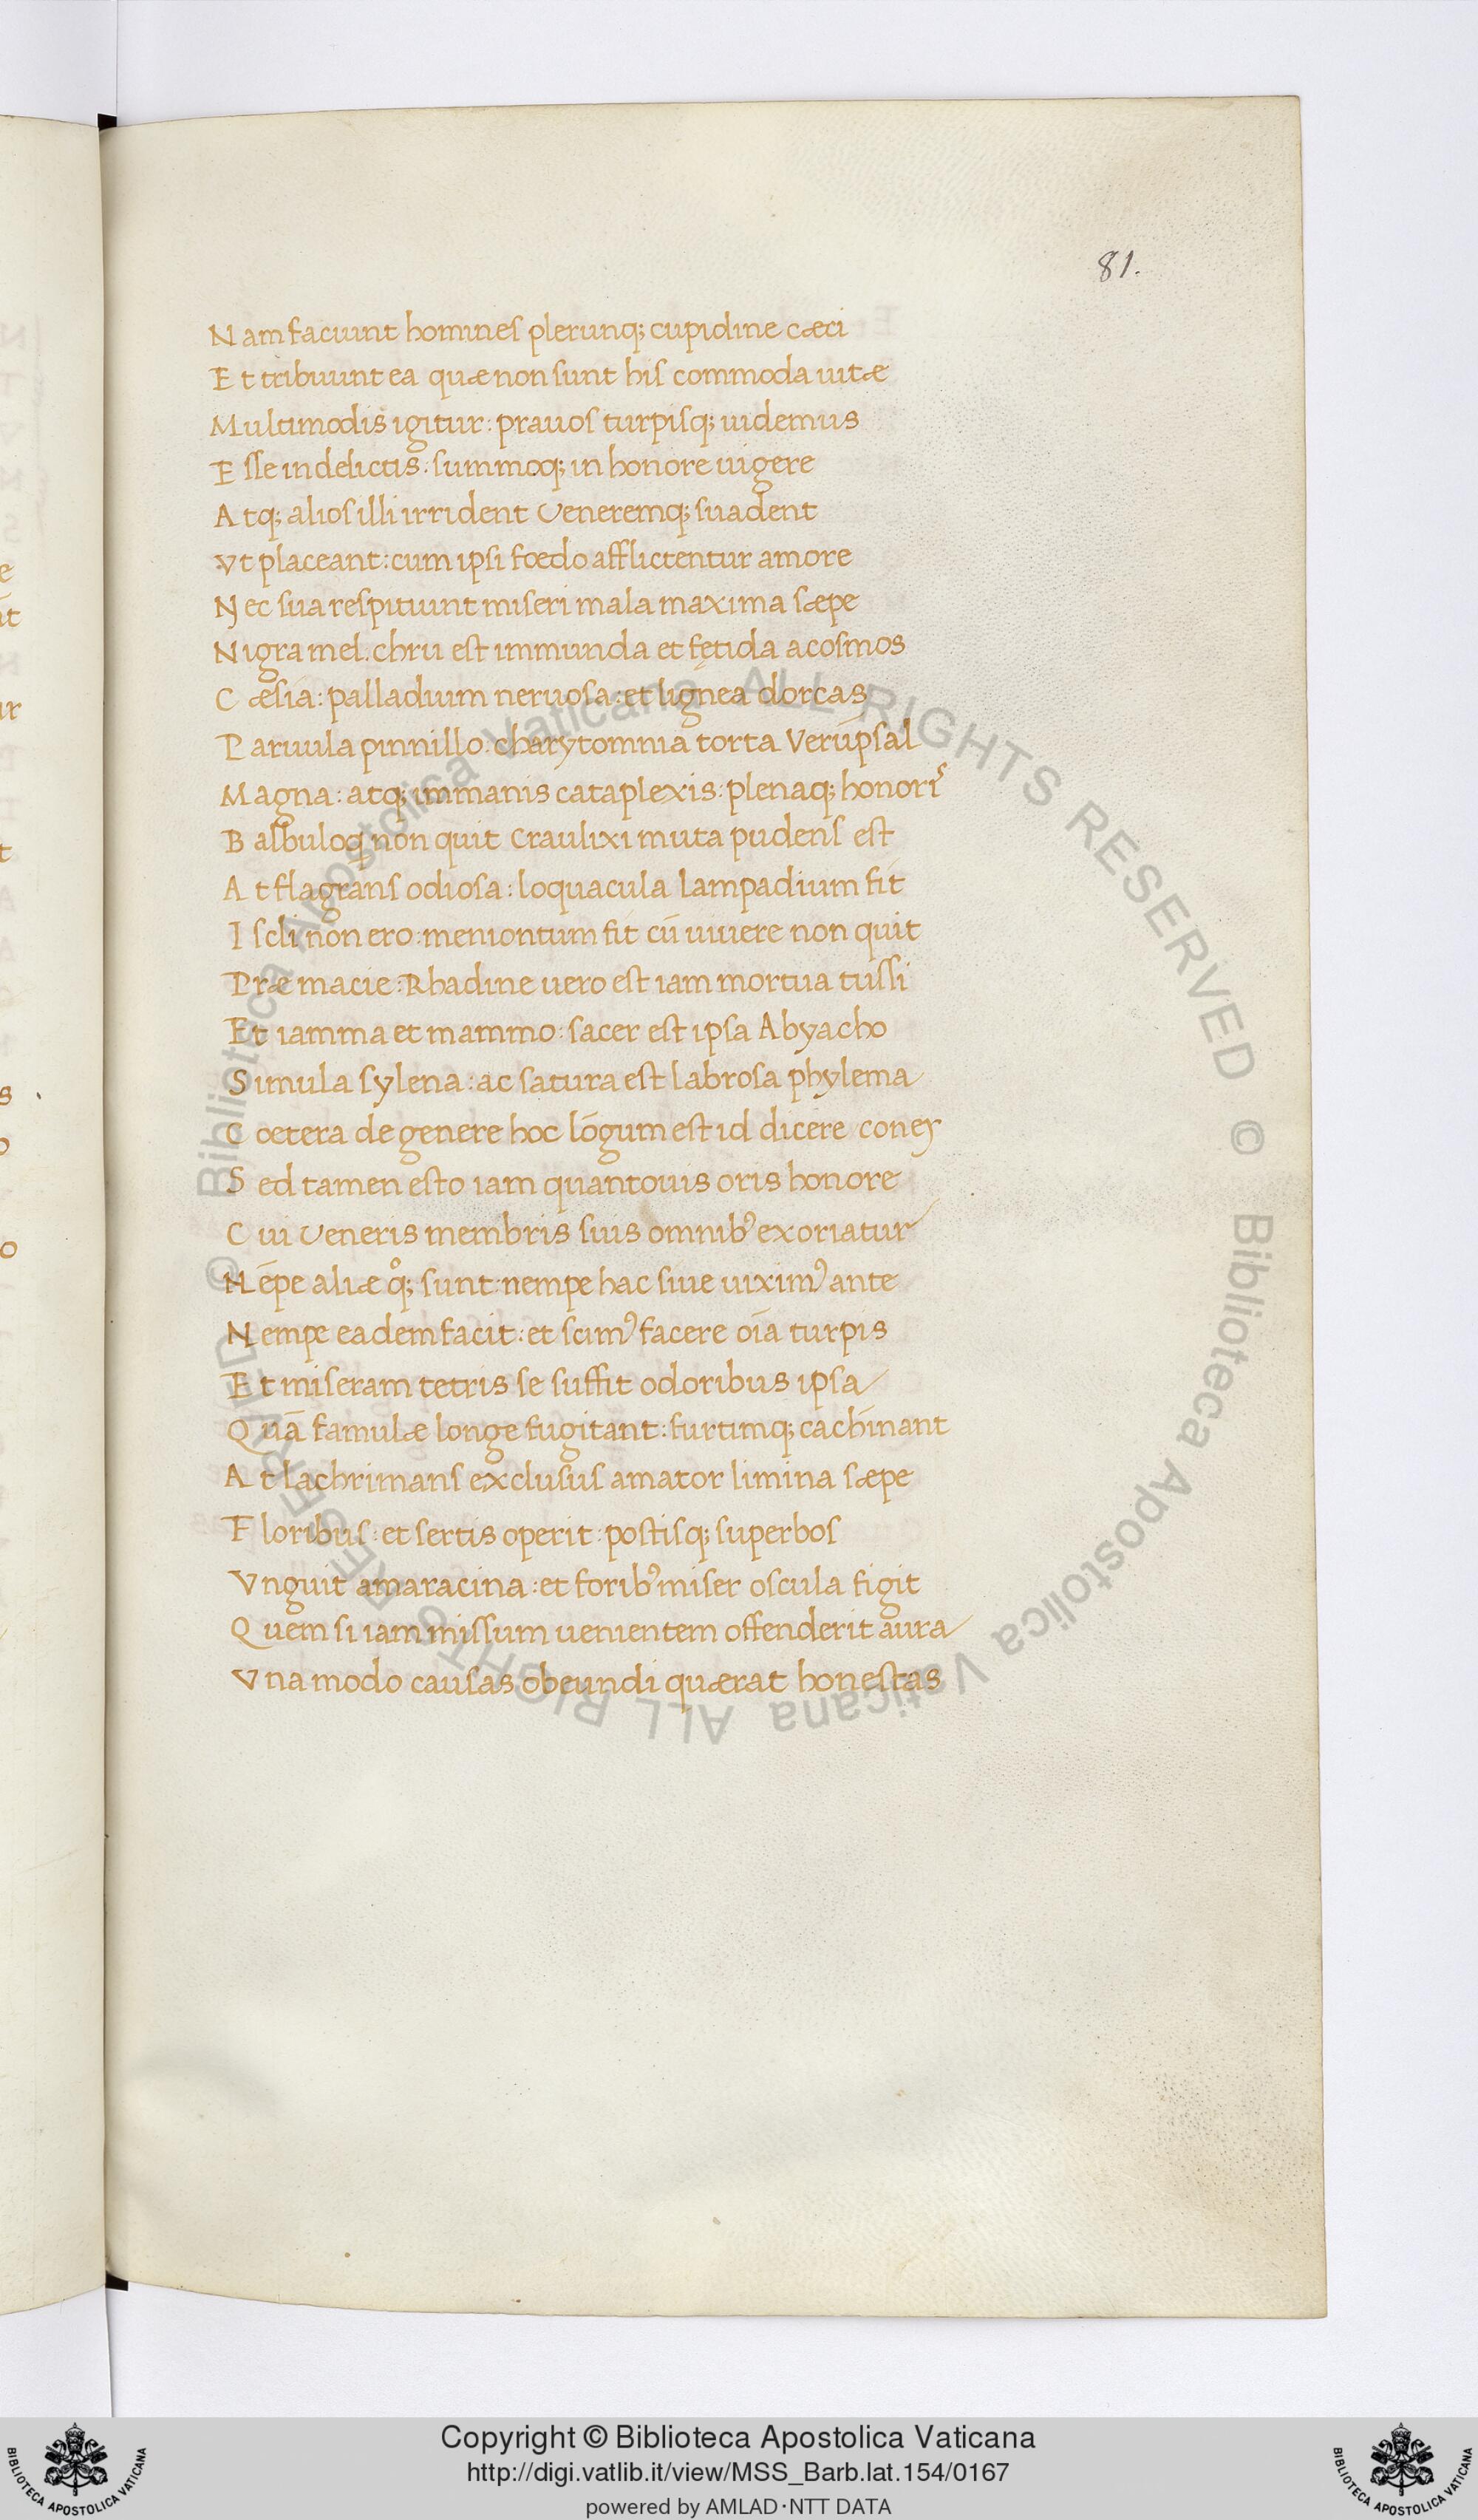 81.
Nam faciunt homines plerunq; cupidine cæci
Et tribuunt ea quæ non sunt his commoda uitæ
Multimodis igitur: prauos turpisq; uidemus
Esse in delictis: summoq; in honore uigere
Atq; alios illi irrident Veneremq; suadent
Vt placeant: cum ipsi fœdo afflictentur amore
Nec sua respituunt miseri mala maxima sæpe
Nigra mel. chru est immunda et fętida acosmos
Cæsia: palladium neruosa: et lignea dorcas
Paruula pinnillo. charytomnia torta Verūpsal
Magna: atq; immanis cataplexis: plenaq; honoris
Balbuloq non quit Craulixi muta pudens est
At flagrans odiosa: loquacula lampadium fit
Iscli non ero: meniontum fit cū uiuere non quit
Præ macie: Rhadine uero est iam mortua tussi
Et iamma et mammo: sacer est ipsa Abyacho
Simula sylena: ac satura est labrosa phylema
Cœtera de genere hoc lōgum est id dicere coner
Sed tamen esto iam quantouis oris honore
Cui Veneris membris suis omnibꝰ exoriatur
Nēpe aliæ qͦq; sunt: nempe hac siue uiximꝰ ante
Nempe eadem facit: et scimꝰ facere oīa turpis
Et miseram tetris se suffit odoribus ipsa
Quā famulæ longe fugitant: furtimq; cachīnant
At lachrimans exclusus amator limina sæpe
Floribus: et sertis operit: postisq; superbos
Vnguit amaracina: et foribꝰ miser oscula figit
Quem si iam missum uenientem offenderit aura
Vna modo causas obeundi quærat honestas
© Biblioteca Apostolica Vaticana ALL RIGHTS RESERVED © Biblioteca Apostolica Vaticana ALL RIGHTS RESERVED
Copyright © Biblioteca Apostolica Vaticana
http://digi.vatlib.it/view/MSS_Barb.lat.154/0167
powered by AMLAD·NTT DATA
BIBLIOTECA APOSTOLICA VATICANA
BIBLIOTECA APOSTOLICA VATICANA